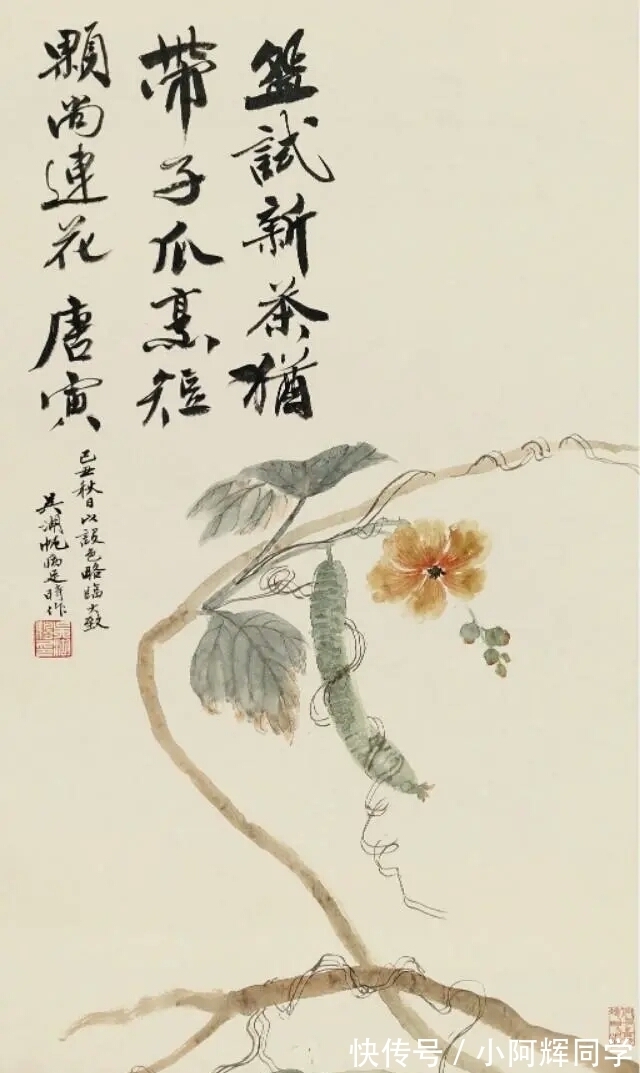 試新茶猶
帶子瓜烹短
顆尚連花 唐寅
己丑秋日以設色略臨大致
吳湖帆時作
快传号/小阿辉同学